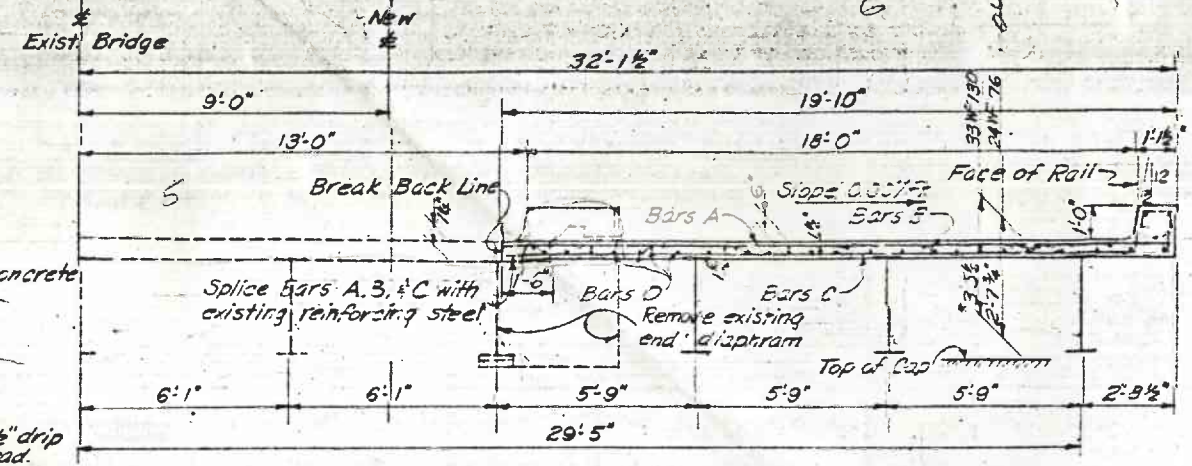 6
℄
Exist. Bridge
New
℄
32'-1½"
9'-0"
19'-10"
13'-0"
18'-0"
1'-1½"
33WF130
24WF76
5
Break Back Line
Bars A
Slope
Bars
Face of Rail
12
1'-0"
concrete
Splice Bars A.B, & C with
existing reinforcing steel
1'-0"
Bars D
Bars C
Remove existing
end diaphram
Top of Cap
6'-1"
6'-1"
5'-9"
5'-9"
5'-9"
29'-5"
½" drip